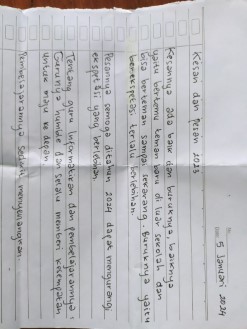 5 Januari 2024
Kesan dan Pesan 2023
Kesannya ada baik dan buruknya, baiknya
yaitu bertemu teman baru di luar sekolah dan
bisa berteman sampai sekarang. Buruknya yaitu
berekspetasi terlalu berlebihan.
Pesannya semoga ditahun 2024 dapat mengurangi
ekspetasi yang berlebihan
Tentang guru informatika dan pembelajarannya:
Gurunya humble dan selalu memberi kesempatan
untuk maju ke depan
Pembelajarannya sedikit menyenangkan.